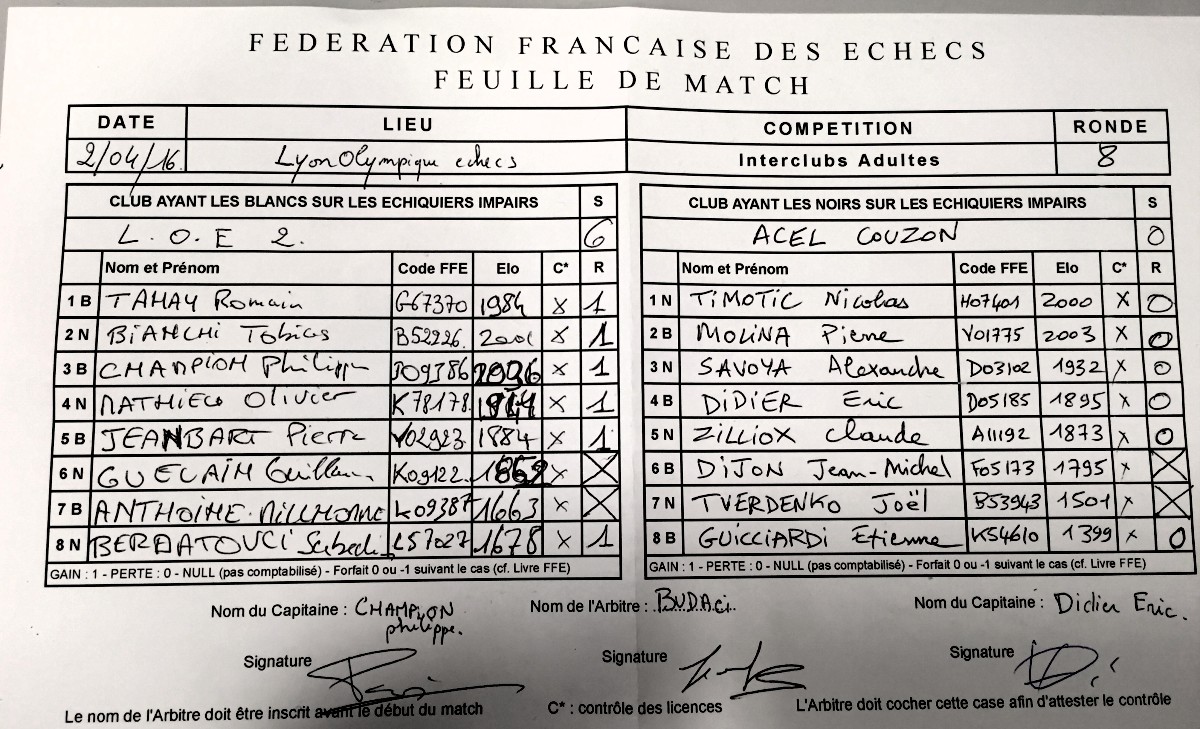 FEDERATION FRANCAISE DES ECHECS
FEUILLE DE MATCH
DATE LIEU COMPETITION RONDE
2/04/16 Lyon Olympique echecs Interclubs Adultes 8
CLUB AYANT LES BLANCS SUR LES ECHIQUIERS IMPAIRS S CLUB AYANT LES NOIRS SUR LES ECHIQUIERS IMPAIRS S
L.O.E 2. 6 ACEL COUZON 0
Nom et Prénom Code FFE Elo C* R Nom et Prénom Code FFE Elo C* R
1 B TAHAY Romain G67370 1984 X 1 1 N TIMOTIC Nicolas H07401 2000 X 0
2 N BIANCHI Tobias B52226. 2001 X 1 2 B MOLINA Pierre Y01775 2003 X 0
3 B CHAMPION Philippe J09386 2036 X 1 3 N SAVOYA Alexandre D03102 1932 X 0
4 N MATHIEU Olivier K78178 X 1 4 B DIDIER Eric D05185 1895 X 0
5 B JEANBART Pierre Y02923 1884 X 1 5 N ZILLIOX Claude A11192 1873 X 0
6 N K09122 X X 6 B DIJON Jean-Michel F05173 1795 X X
7 B ANTHOINE-MILLHOMME K09387 1663 X X 7 N TVERDENKO Joël B53943 1501 X X
8 N L57027 1678 X 1 8 B GUICCIARDI Etienne K54610 1399 X 0
GAIN : 1 - PERTE : 0 - NULL (pas comptabilisé) - Forfait 0 ou -1 suivant le cas (cf. Livre FFE) GAIN : 1 - PERTE : 0 - NULL (pas comptabilisé) - Forfait 0 ou -1 suivant le cas (cf. Livre FFE)
Nom du Capitaine : CHAMPION philippe. Nom de l'Arbitre : BUDACi. Nom du Capitaine : Didier Eric.
Signature Signature Signature
Le nom de l'Arbitre doit être inscrit avant le début du match C* : contrôle des licences L'Arbitre doit cocher cette case afin d'attester le contrôle